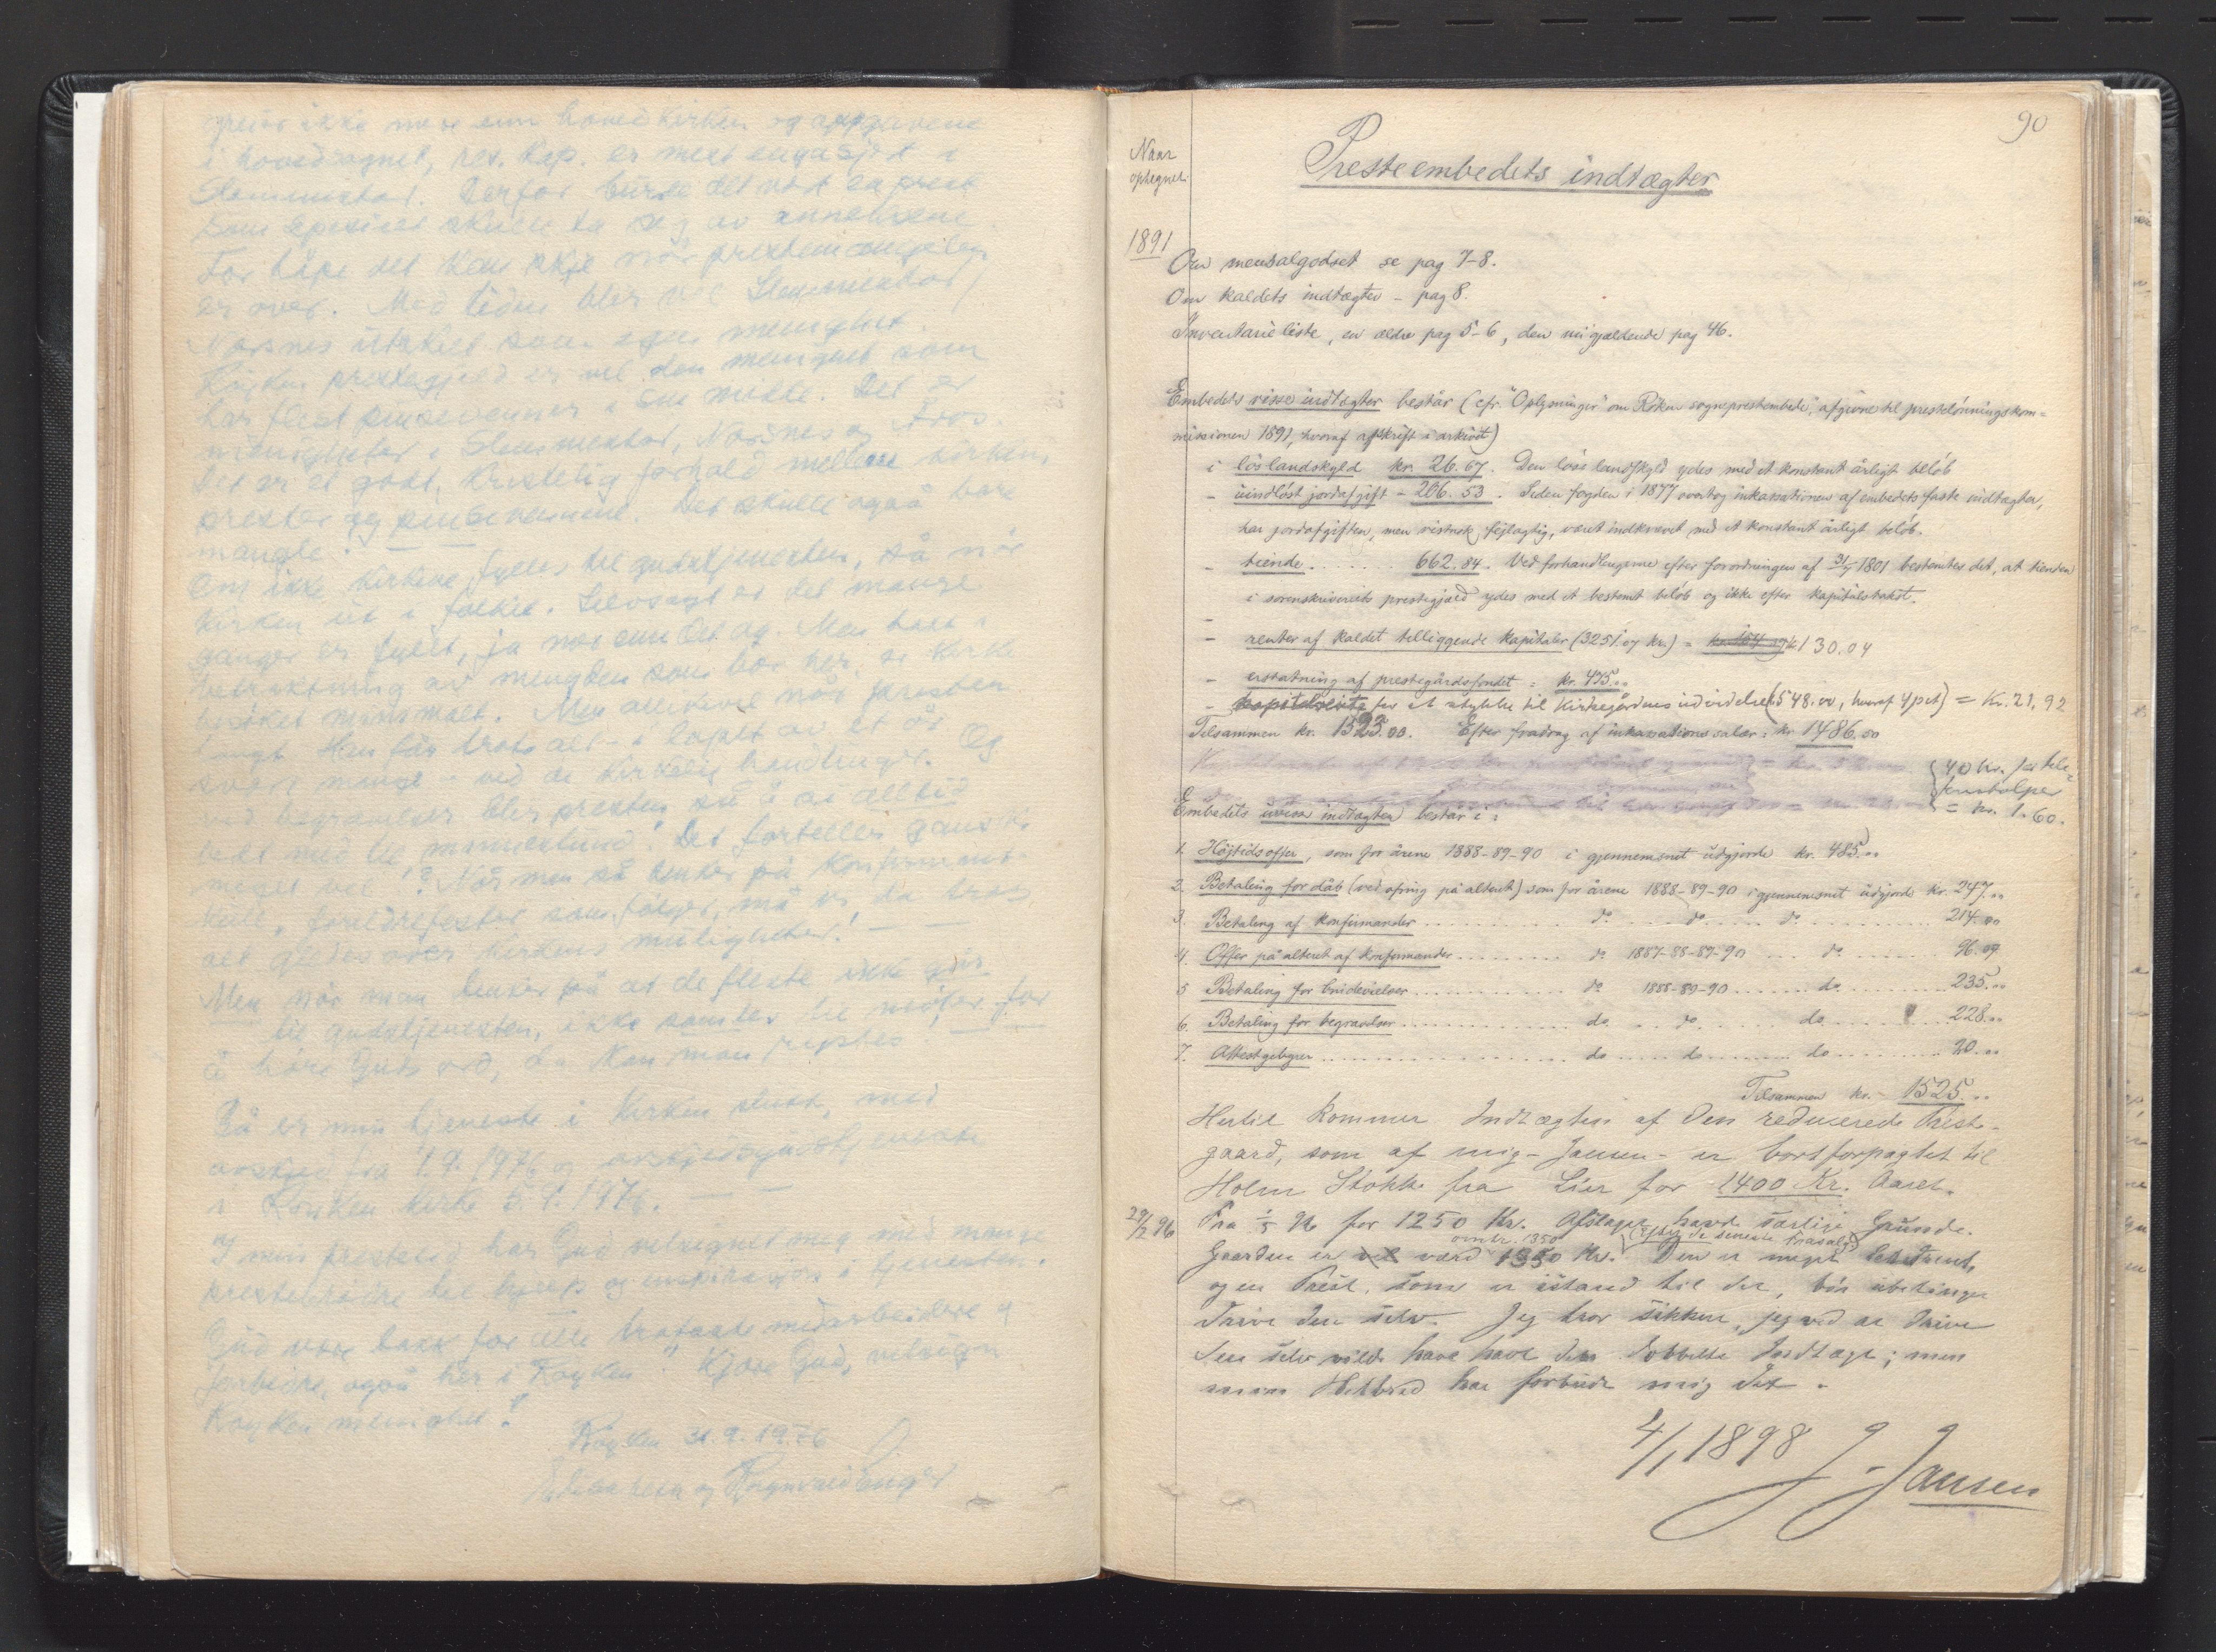 ikke mere enn hovedkirken og oppgavene
i hovedsognet, res. kap. er mest engasjert i
Slemmestad. Derfor burde det vært en prest
som spesielt skulle ta seg av
Får håpe det kan skje når prestemangelen
er over. Med tiden blir vel Slemmestad/
Nærsnes utskilt som egen menighet.
Røyken prestegjeld er vel den menighet som
har flest pinsevenner i sin midte. Det er
menigheter i Slemmestad, Nærsnes og Åros.
Det er et godt, kristelig forhold mellom kirken,
prester og pinsevennene. Det skulle også bare
mangle.
Om ikke kirkene fylles til gudstjenesten, så når
kirken ut i folket. Selvsagt er det mange
ganger er fyllt, ja mer enn det og. Men tatt i
betraktning av mengden som bor her, er kirke-
besøket minimalt. Men allikevel når presten
langt. Han får tross alt - i løpet av et år
svært mange - ved de kirkelige handlinger. Og
ved begravelser blir presten så å si alltid
bedt med til minnestund. Det forteller ganske
meget vel!? Når man så tenker på konfirmant-
kull, foreldrefester som følger, må vi da tross
alt gledes over kirkens muligheter! —
Men når man tenker på at de fleste ikke går
til gudstjenesten, ikke samles til møter for
å høre Guds ord, da kan man rystes!
Så er min tjeneste i kirken slutt, med
avskjed fra 1.9.1976 og avskjedsgudstjeneste
i Røyken kirke 5.9.1976.
I min prestetid har Gud velsignet meg med mange
prestebrødre til hjelp og inspirasjon i tjenesten.
Gud være takk for alle trofaste medarbeidere og
forbedre, også her i Røyken. Kjære Gud, velsign
Røyken menighet!
Røyken 31.9.1976
90
Naar
optegnet.
Presteembedets indtægter
1891
Om mensalgodset se pag 7-8.
Om kaldets indtægter - pag 8.
Inventarieliste, en ældre pag 5-6, den nugjældende pag 46.
Embedets visse indtægter består (cfr. "Oplysninger" om Röken sogneprestembede, afgivne til prestelönningskom=
missionen 1891, hvoraf afskrift i arkivet)
i löslandskyld kr. 26.67. Den löse landskyld ydes med et konstant årligt belöb
- uindlöst jordafgift - 206.53. Siden fogden i 1877 overtog inkassationen af embedets faste indtægter,
har jordafgiften, men vistnok fejlagtig, været indkrævet med et konstant årligt belöb.
- tiende . . . . . 662.84. Ved forhandlingerne efter forordningen af 1801 bestemtes det, at tienden
i sorenskriverets prestegjæld ydes med et bestemt belöb og ikke efter kapitelstakst.
- renter af kaldet tilliggende kapitaler (3251.07 kr.) = kr. 130.04
- erstatning af prestegårdsfondet = kr. 475..
- kapitalrente for et stykke til kirkegårdens udvidelse (548.00, hvoraf 4 pct) = Kr. 21,92
Tilsammen kr. 1523.00. Efter fradrag af inkassationssalær = kr 1486.50
40 kr. for tele=
fonstolper
= kr. 1.60.
Embedets uvisse indtægter består i:
1. Höjtidsoffer, som for årene 1888-89-90 i gjennemsnit udgjorde kr. 485..
2. Betaling for dåb (ved ofring på alteret) som for årene 1888-89-90 i gjennemsnit udgjorde kr. 247..
3. Betaling af konfirmander . . . . do . . . do . . . do . . . 214.00
4. Offer på alteret af konfirmander . . . . do 1887-88-89-90 . . . do . . . 96.09
5 Betaling for brudevielser . . . . do 1888-89-90 . . . do . . . 235..
6. Betaling for begravelser . . . . do . . . do . . . do . . . 228..
7. Attestgebyrer . . . . do . . . do . . . do . . . 20...
Tilsammen kr. - 1525...
Hertil kommer Indtægten af den reducerede Præste-
gaard, som af mig - Jansen - er bortforpagtet til
Holm Stokke fra Lier for 1400 Kr. Aaret.
29/2 96 Fra 1/5 96 for 1250 Kr. Afslaget havde særlige Grunde.
omtr. 1350 (efter de seneste Frasalg)
Gaarden er vel værd 1350 Kr. Den er meget
og en Præst, som er istand til det, bör ubetinget
drive den selv. Jeg tror sikkert, jeg ved at drive
den selv vilde have havt den dobbelte Indtægt; men
min Helbred har forbudt mig det.
4/1 1898 J. Jansen